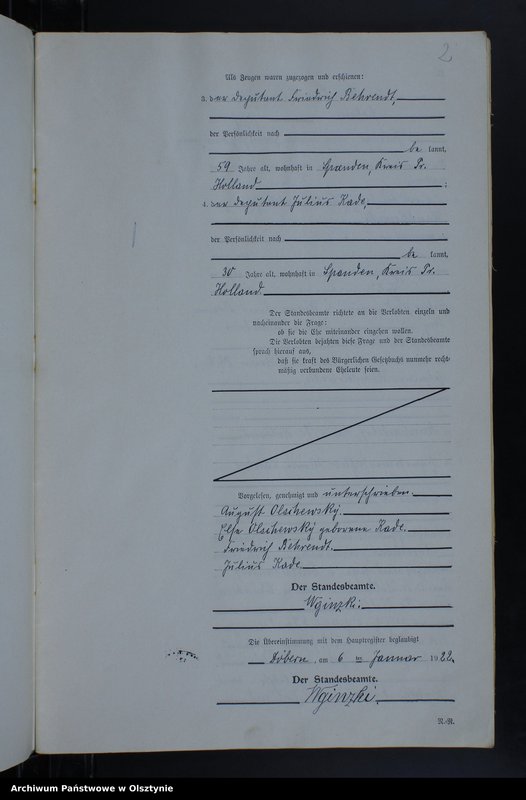 2
Als Zeugen waren zugezogen und erschienen:
3. der Deputant Friedrich Behrendt,
der Persönlichkeit nach
be kannt,
59 Jahre alt, wohnhaft in Spanden, Kreis Pr.
Holland ;
4. der Deputant Julius Kade,
der Persönlichkeit nach
be kannt,
30 Jahre alt, wohnhaft in Spanden, Kreis Pr.
Holland.
Der Standesbeamte richtete an die Verlobten einzeln und
nacheinander die Frage:
ob sie die Ehe miteinander eingehen wollen.
Die Verlobten bejahten diese Frage und der Standesbeamte
sprach hierauf aus,
daß sie kraft des Bürgerlichen Gesetzbuchs nunmehr recht-
mäßig verbundene Eheleute seien.
Vorgelesen, genehmigt und unterschrieben.
August Olschewsky.
Else Olschewsky geborene Kade.
Friedrich Behrendt.
Julius Kade
Der Standesbeamte.
Wginzki.
Die Übereinstimmung mit dem Hauptregister beglaubigt
Döbern, am 6 ten Januar 1922.
Der Standesbeamte.
Wginzki.
R.-R.
Archiwum Państwowe w Olsztynie